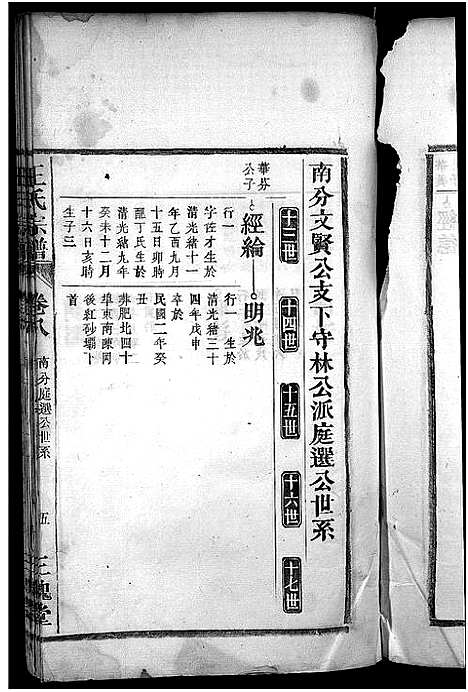 南分文賢公支下守林公派庭選公世系
十三世
十四世
十五世
十六世
十七世
華芬
公子
經綸
行一
字佐才生於
清光緒十一
年乙酉九月
十五日卯時
丁氏生於
清光緒九年
癸未十二月
十六日亥時
生子三
明兆
行一 生於
清光緒三十
四年戊申
卒於
民國二年癸
丑
葬肥北四十
埠東南陳岡
後紅砂壩下
首
王氏宗譜
卷八
南分庭選公世系
五
三槐堂